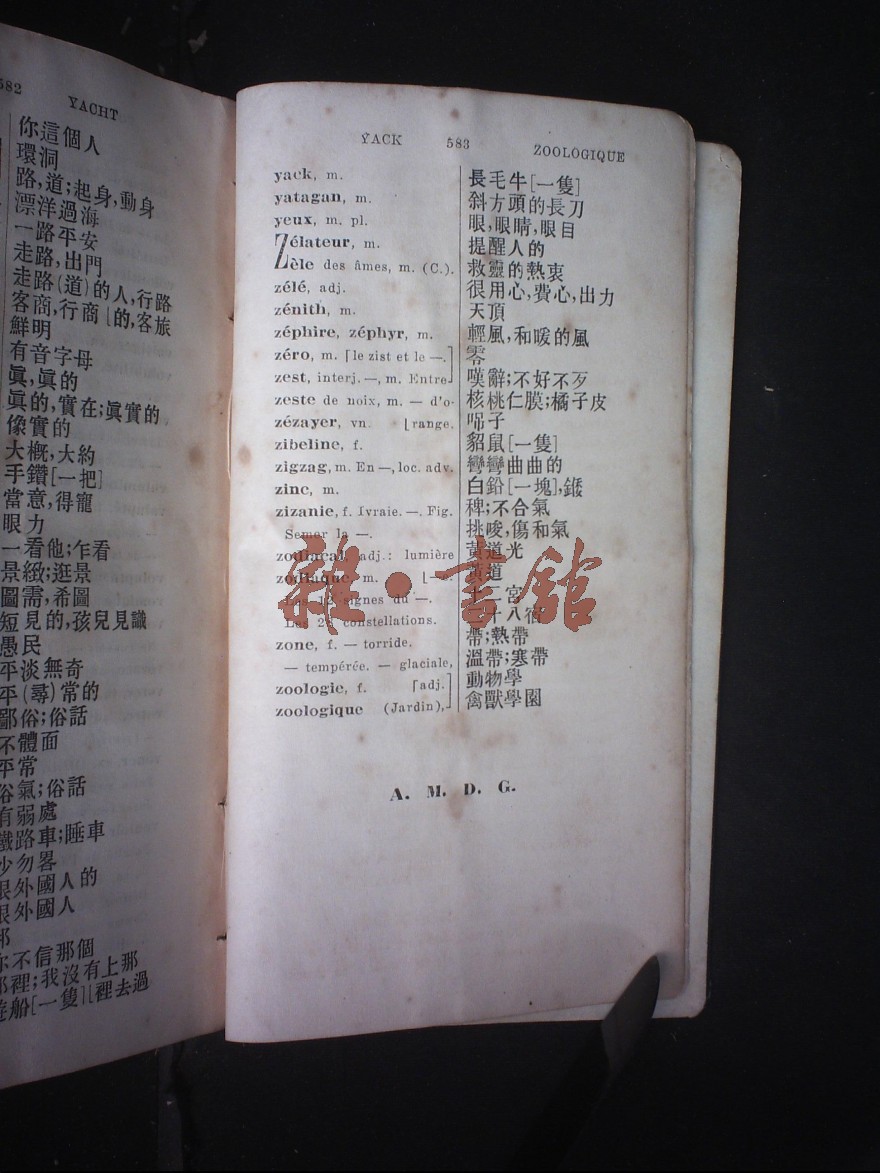 582 YACHT
你這個人
環洞
路,道;起身,動身
漂洋過海
一路平安
走路,出門
走路(道)的人,行路
客商,行商⌊的,客旅
鮮明
有音字母
眞,眞的
眞的,實在;眞實的
像實的
大概,大約
手鑽[一把]
當意,得寵
眼力
一看他;乍看
景緻;逛景
圖需,希圖
短見的,孩兒見識
愚民
平淡無奇
平(尋)常的
鄙俗;俗話
不體面
平常
俗氣;俗話
有弱處
鐵路車;睡車
少勿畧
跟外國人的
跟外國人
那
你不信那個
那裡;我沒有上那
船[一隻]⌊裡去過
YACK 583 ZOOLOGIQUE
yack, m. 長毛牛[一隻]
yatagan, m. 斜方頭的長刀
yeux, m. pl. 眼,眼睛,眼目
Zélateur, m. 提醒人的
Zèle des âmes, m. (C.). 救靈的熱衷
zélé, adj. 很用心,費心,出力
zénith, m. 天頂
zéphire, zéphyr, m. 輕風,和暖的風
zéro, m. ⌈le zist et le —.⌉ 零
zest, interj. —, m. Entre⌋ 嘆辭;不好不歹
zeste de noix, m. — d'o- 核桃仁膜;橘子皮
zézayer, vn ⌊range. 咘子
zibeline, f. 貂鼠[一隻]
zigzag, m. En —, loc. adv. 彎彎曲曲的
zinc, m. 白鉛[一塊],鍛
zizanie, f. Ivraie. —. Fig. 稗;不合氣
Semer la —. 挑唆,傷和氣
zodiacal, adj.: lumière 黃道光
zodiaque, m. ⌊—. 黃道
Les 12 signes du —. 十二宮
Les 28 constellations. 二十八宿
zone, f. — torride. 帶;熱帶
— tempérée. — glaciale, 溫帶;寒帶
zoologie, f. ⌈adj.⌉ 動物學
zoologique (Jardin),⌋ 禽獸學園
A. M. D. G.
雜·書館